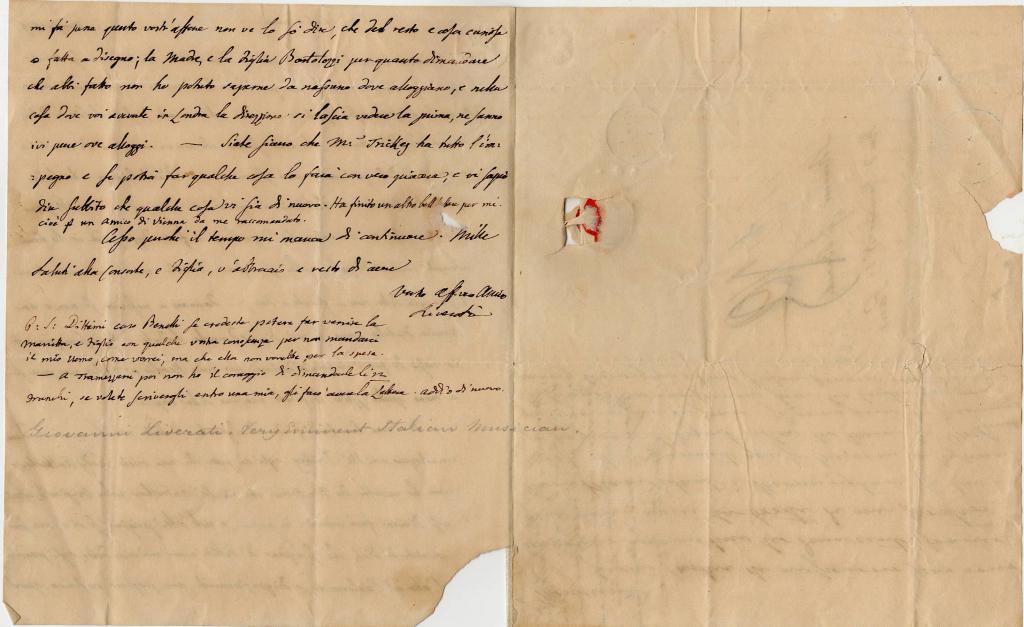 mi fà pena questo vostr'affare non ve lo sò dire, che del resto e cosa curiosa
e fatta a disegno; la Madre, e la Figlia Bartolozzi per quanto dimandare
che abbi fatto non ho potuto saperne da nessuno dove alloggiano, e nella
casa dove voi avevate in Londra la direzzione si lascia vedere la prima, ne sanno
ivi pure ove alloggi. — Siate sicuro che Mr. Trickey ha tutto l'im-
pegno e se potrà far qualche cosa lo farà con vero piacere, e vi saprò
dire subbito che qualche cosa vi sia di nuovo. Ha finito un altro per mi-
cioè p un Amico di Vienna da me raccomandato.
Cesso perchè il tempo mi manca di continuare. Mille
Saluti alla Consorte, e Figlia, v'abbraccio e resto di core
Vostro Affmo Amico
Liverati
P: S: Dittemi caro Benelli se credeste potere far venire la
Marietta, e Figlio con qualche vostra conoscenza per non mandarci
il mio Uomo, come vorrei, ma che ella non vorebbe per la spesa.
— A Tramezzani poi non ho il coraggio di dimandarle
se volete scrivergli entro una mia, gli farò avere la Lettera. addio di nuovo.
Giovanni Liverati. Very eminent Italian Musician.